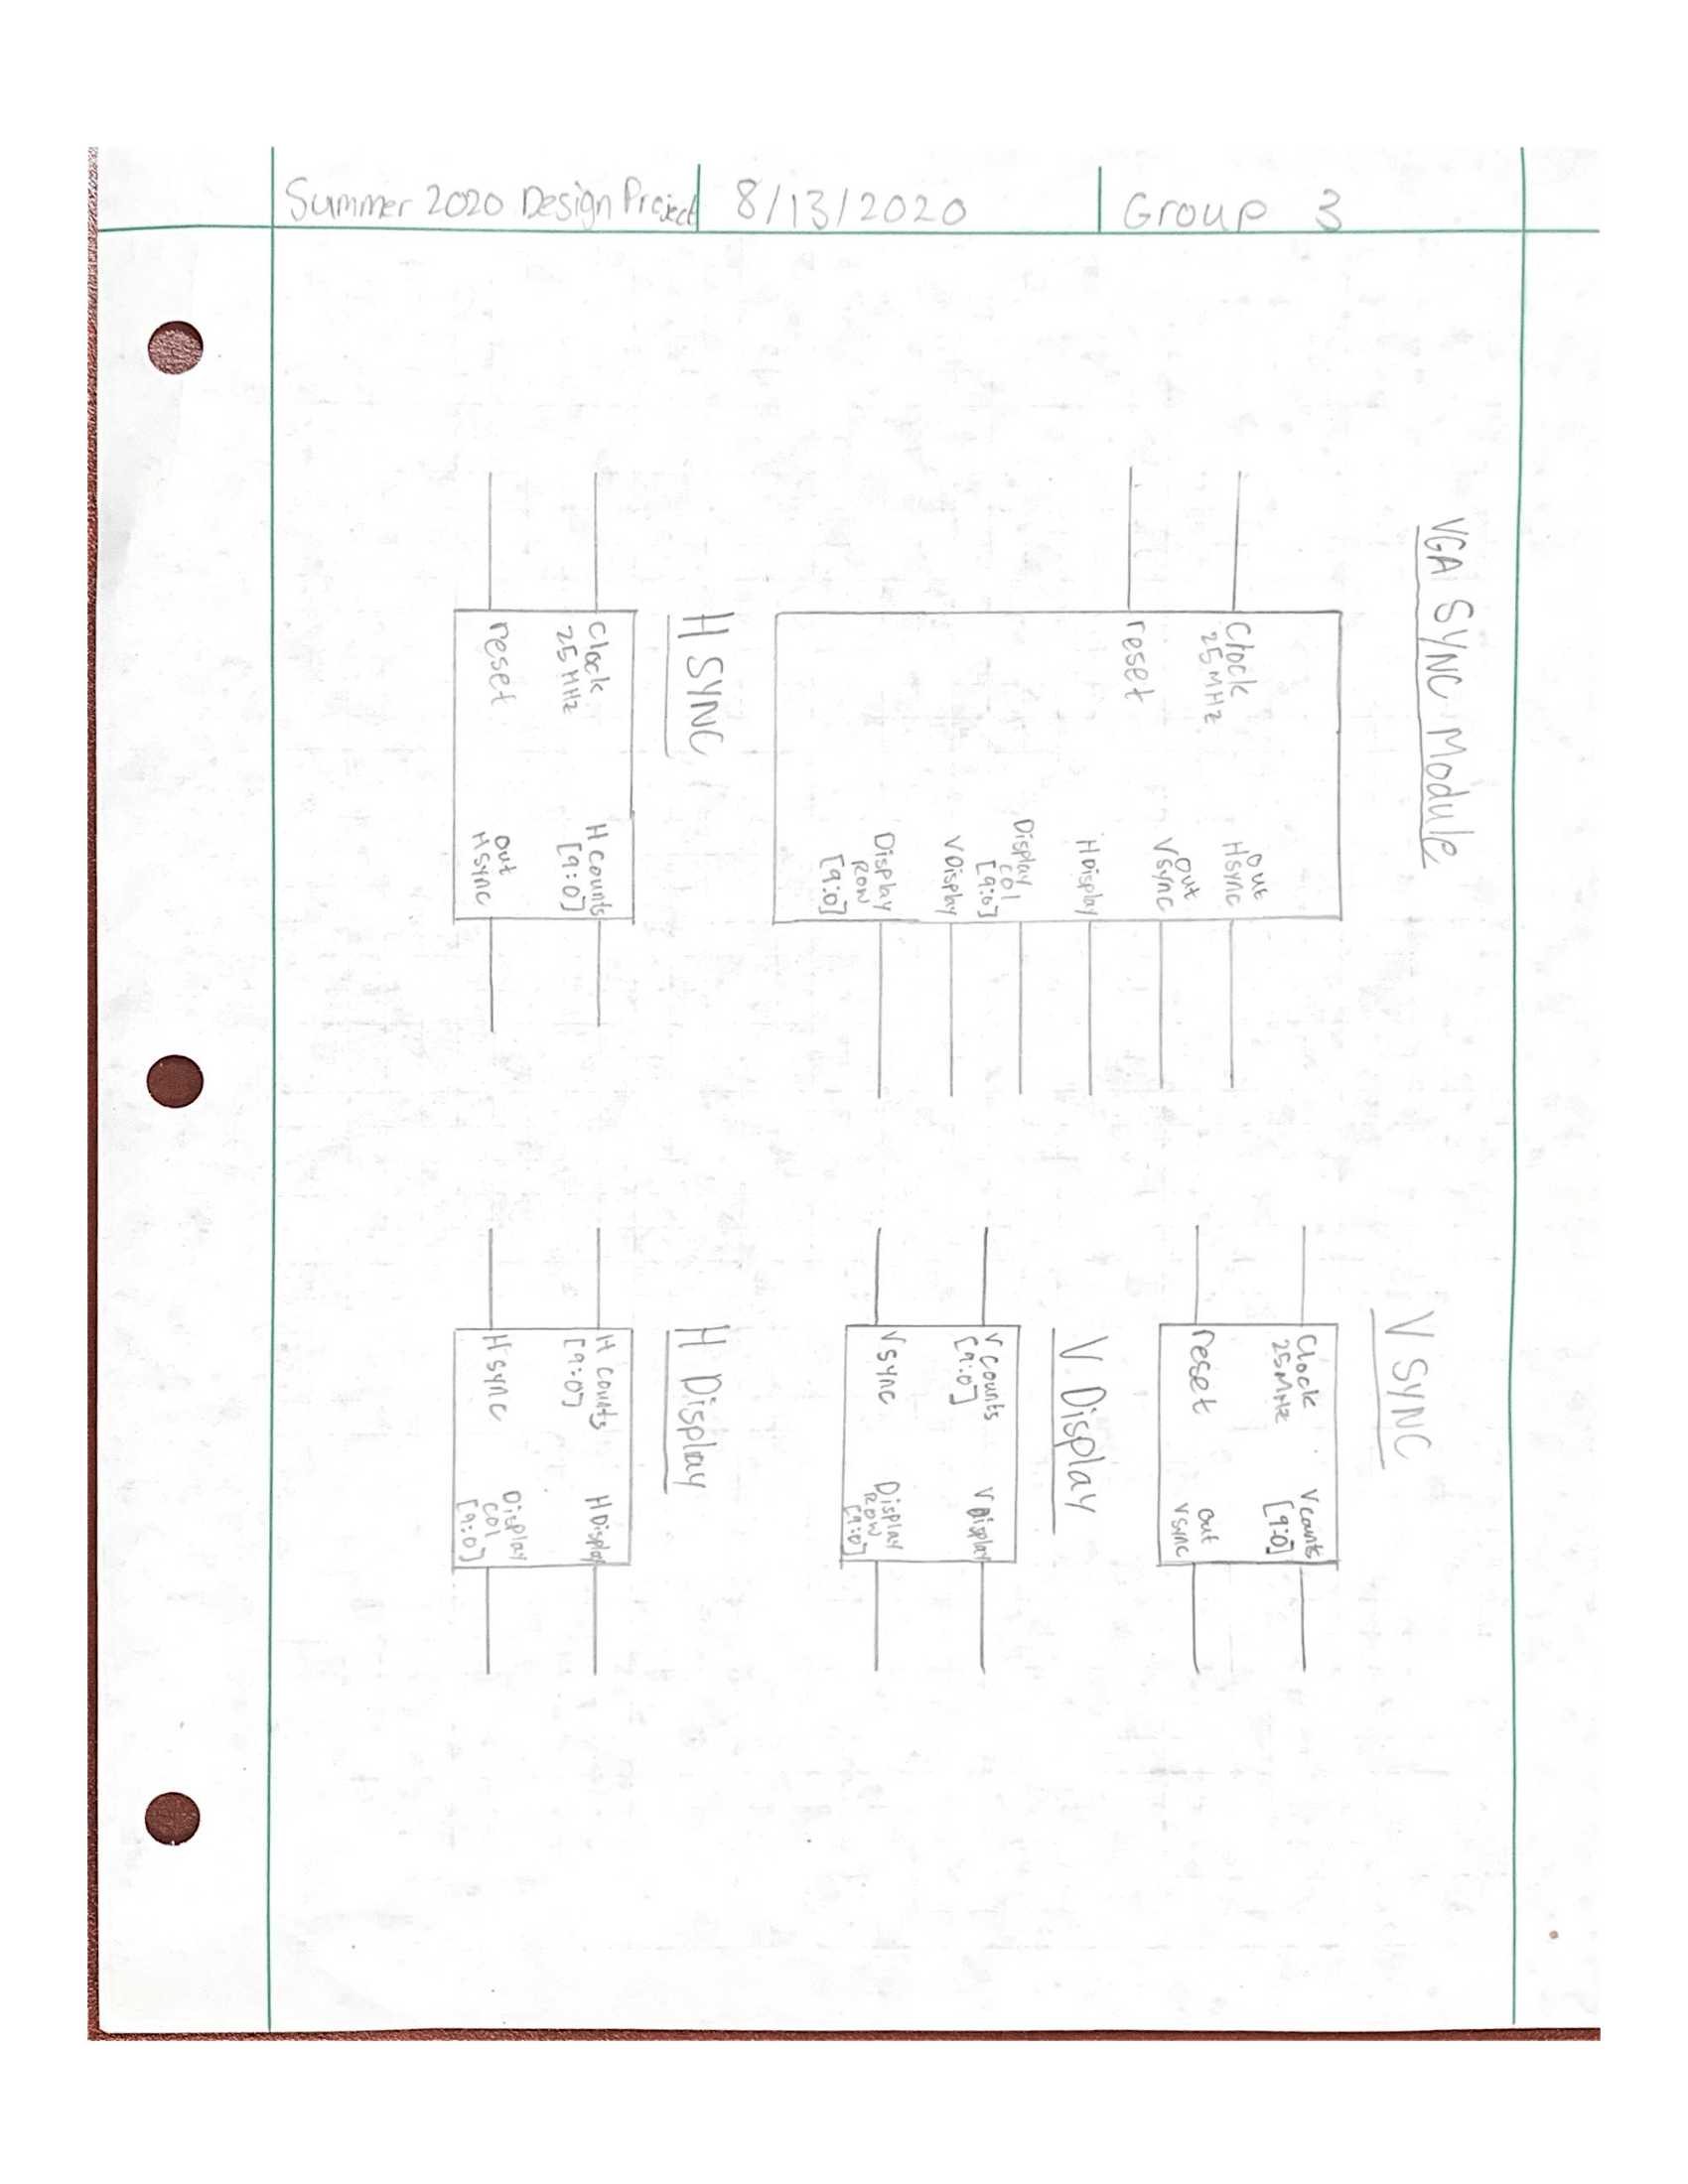 Summer 2020 Design Project
8/13/2020
Group 3
VGA SYNC Module
Clock
25MHz
reset
Out
HSYNC
Out
VSYNC
HDisplay
Display
COl
[9:0]
VDisplay
Display
ROW
[9:0]
H SYNC
Clock
25MHz
reset
H Counts
[9:0]
Out
HSYNC
V SYNC
Clock
25MHz
reset
Vcounts
[9:0]
Out
VSYNC
V Display
V Counts
[9:0]
VSYNC
VDisplay
Display
ROW
[9:0]
H Display
H Counts
[9:0]
HSYNC
HDisplay
Display
COl
[9:0]